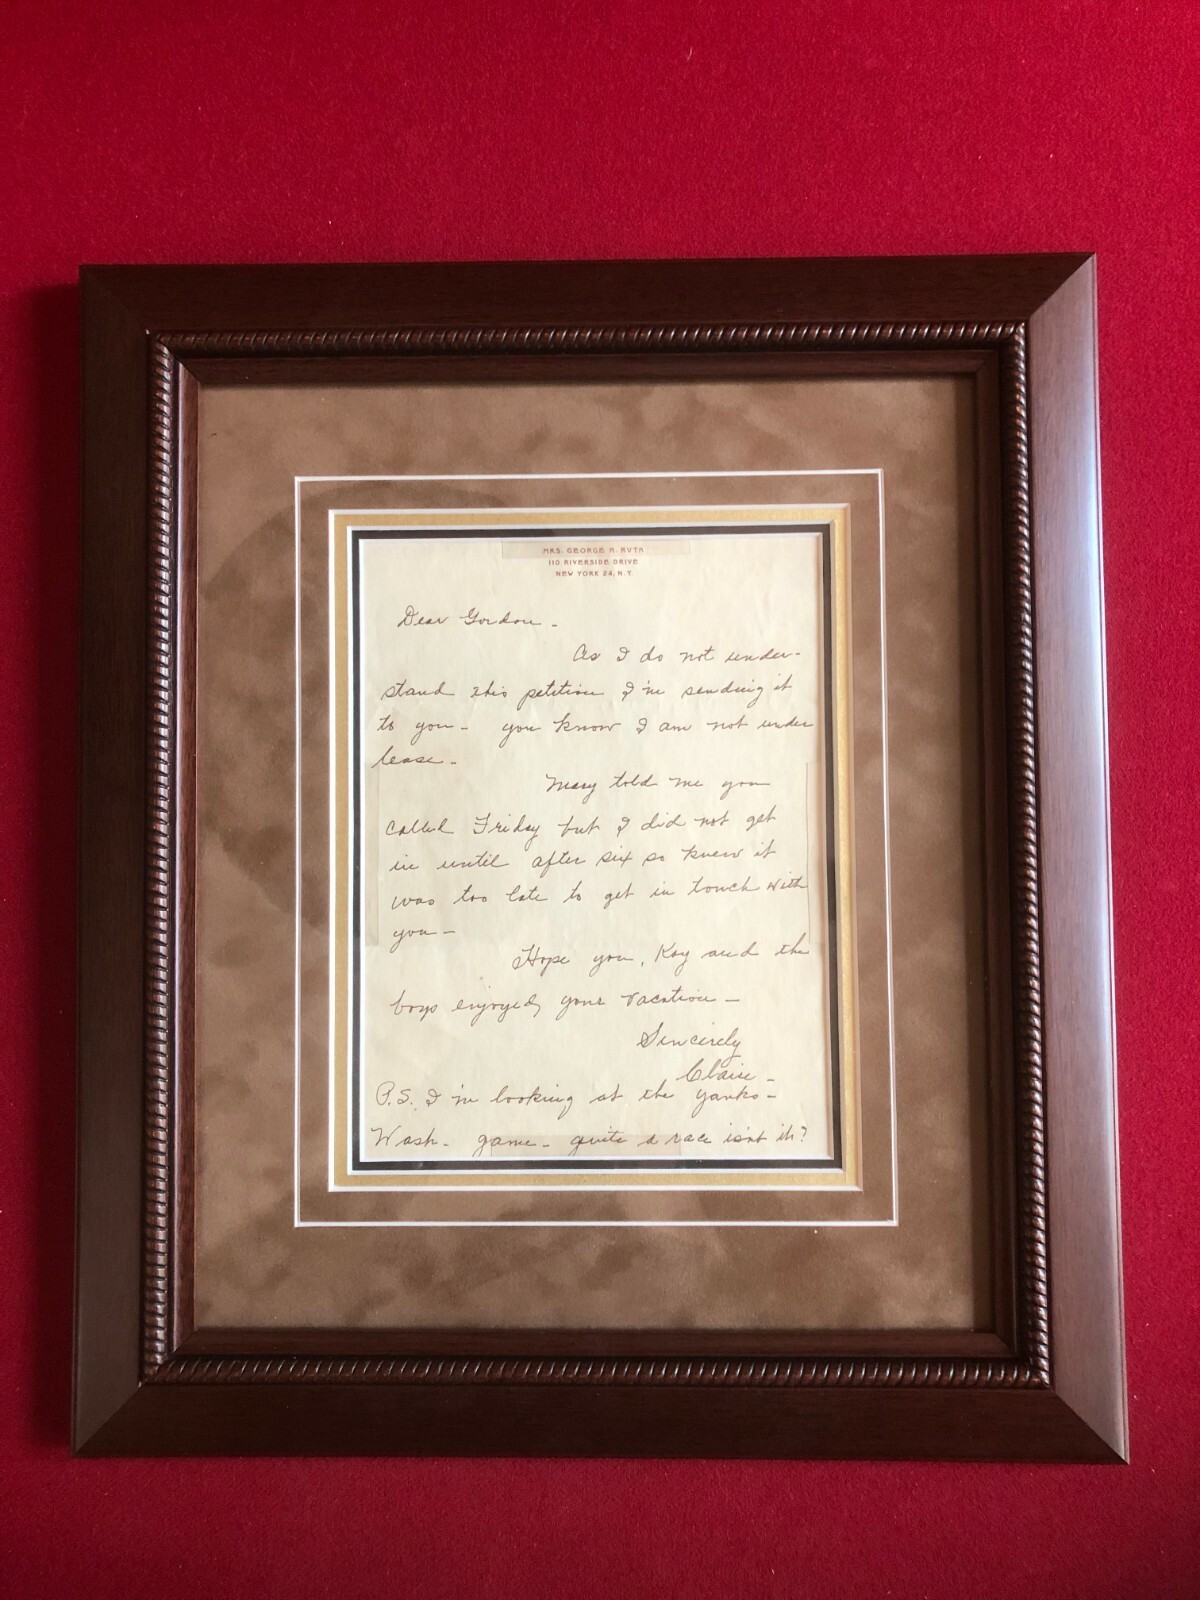 MRS. GEORGE H. RUTH
110 RIVERSIDE DRIVE
NEW YORK 24, N.Y.
Dear Gordon -
As I do not under-
stand this petition I'm sending it
to you - you know I am not under
lease -
Mary told me you
called Friday but I did not get
in until after six so knew it
was too late to get in touch with
you -
Hope you, Kay and the
boys enjoyed your vacation -
Sincerely
Claire -
P.S. I'm looking at the Yanks -
Wash - game - quite a race isn't it?